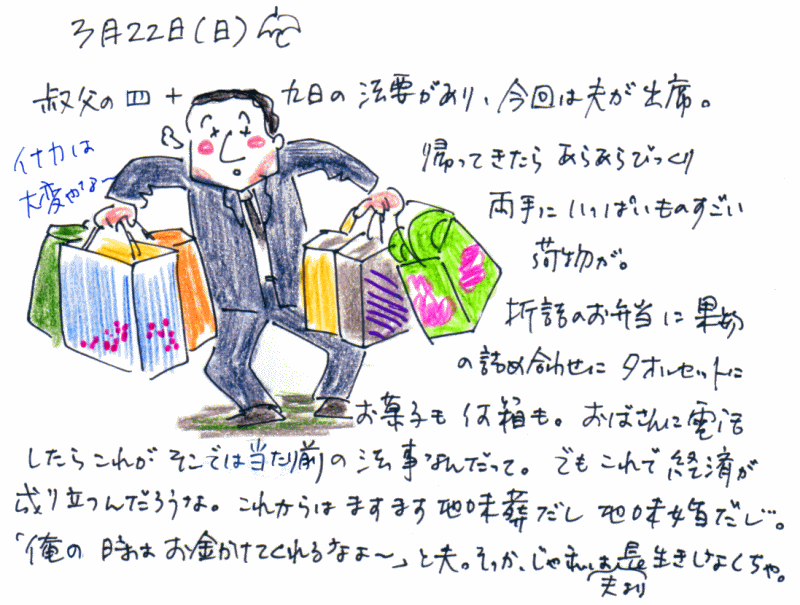 3月22日(日)
叔父の四十九日の法要があり、今回は夫が出席。
イナカは
大変やな〜
帰ってきたら あらあらびっくり
両手に いっぱいものすごい
荷物が。
折詰のお弁当に 果物
の詰め合わせに タオルセットに
お菓子も 何箱も。おばさんに電話
したらこれが そこでは当たり前の法事なんだって。でもこれで経済が
成り立つんだろうな。これからは ますます地味葬だし 地味婚だし。
「俺の時は お金かけてくれるなよ〜」と夫。そっか、じゃあ私は長生きしなくちゃ。
夫より